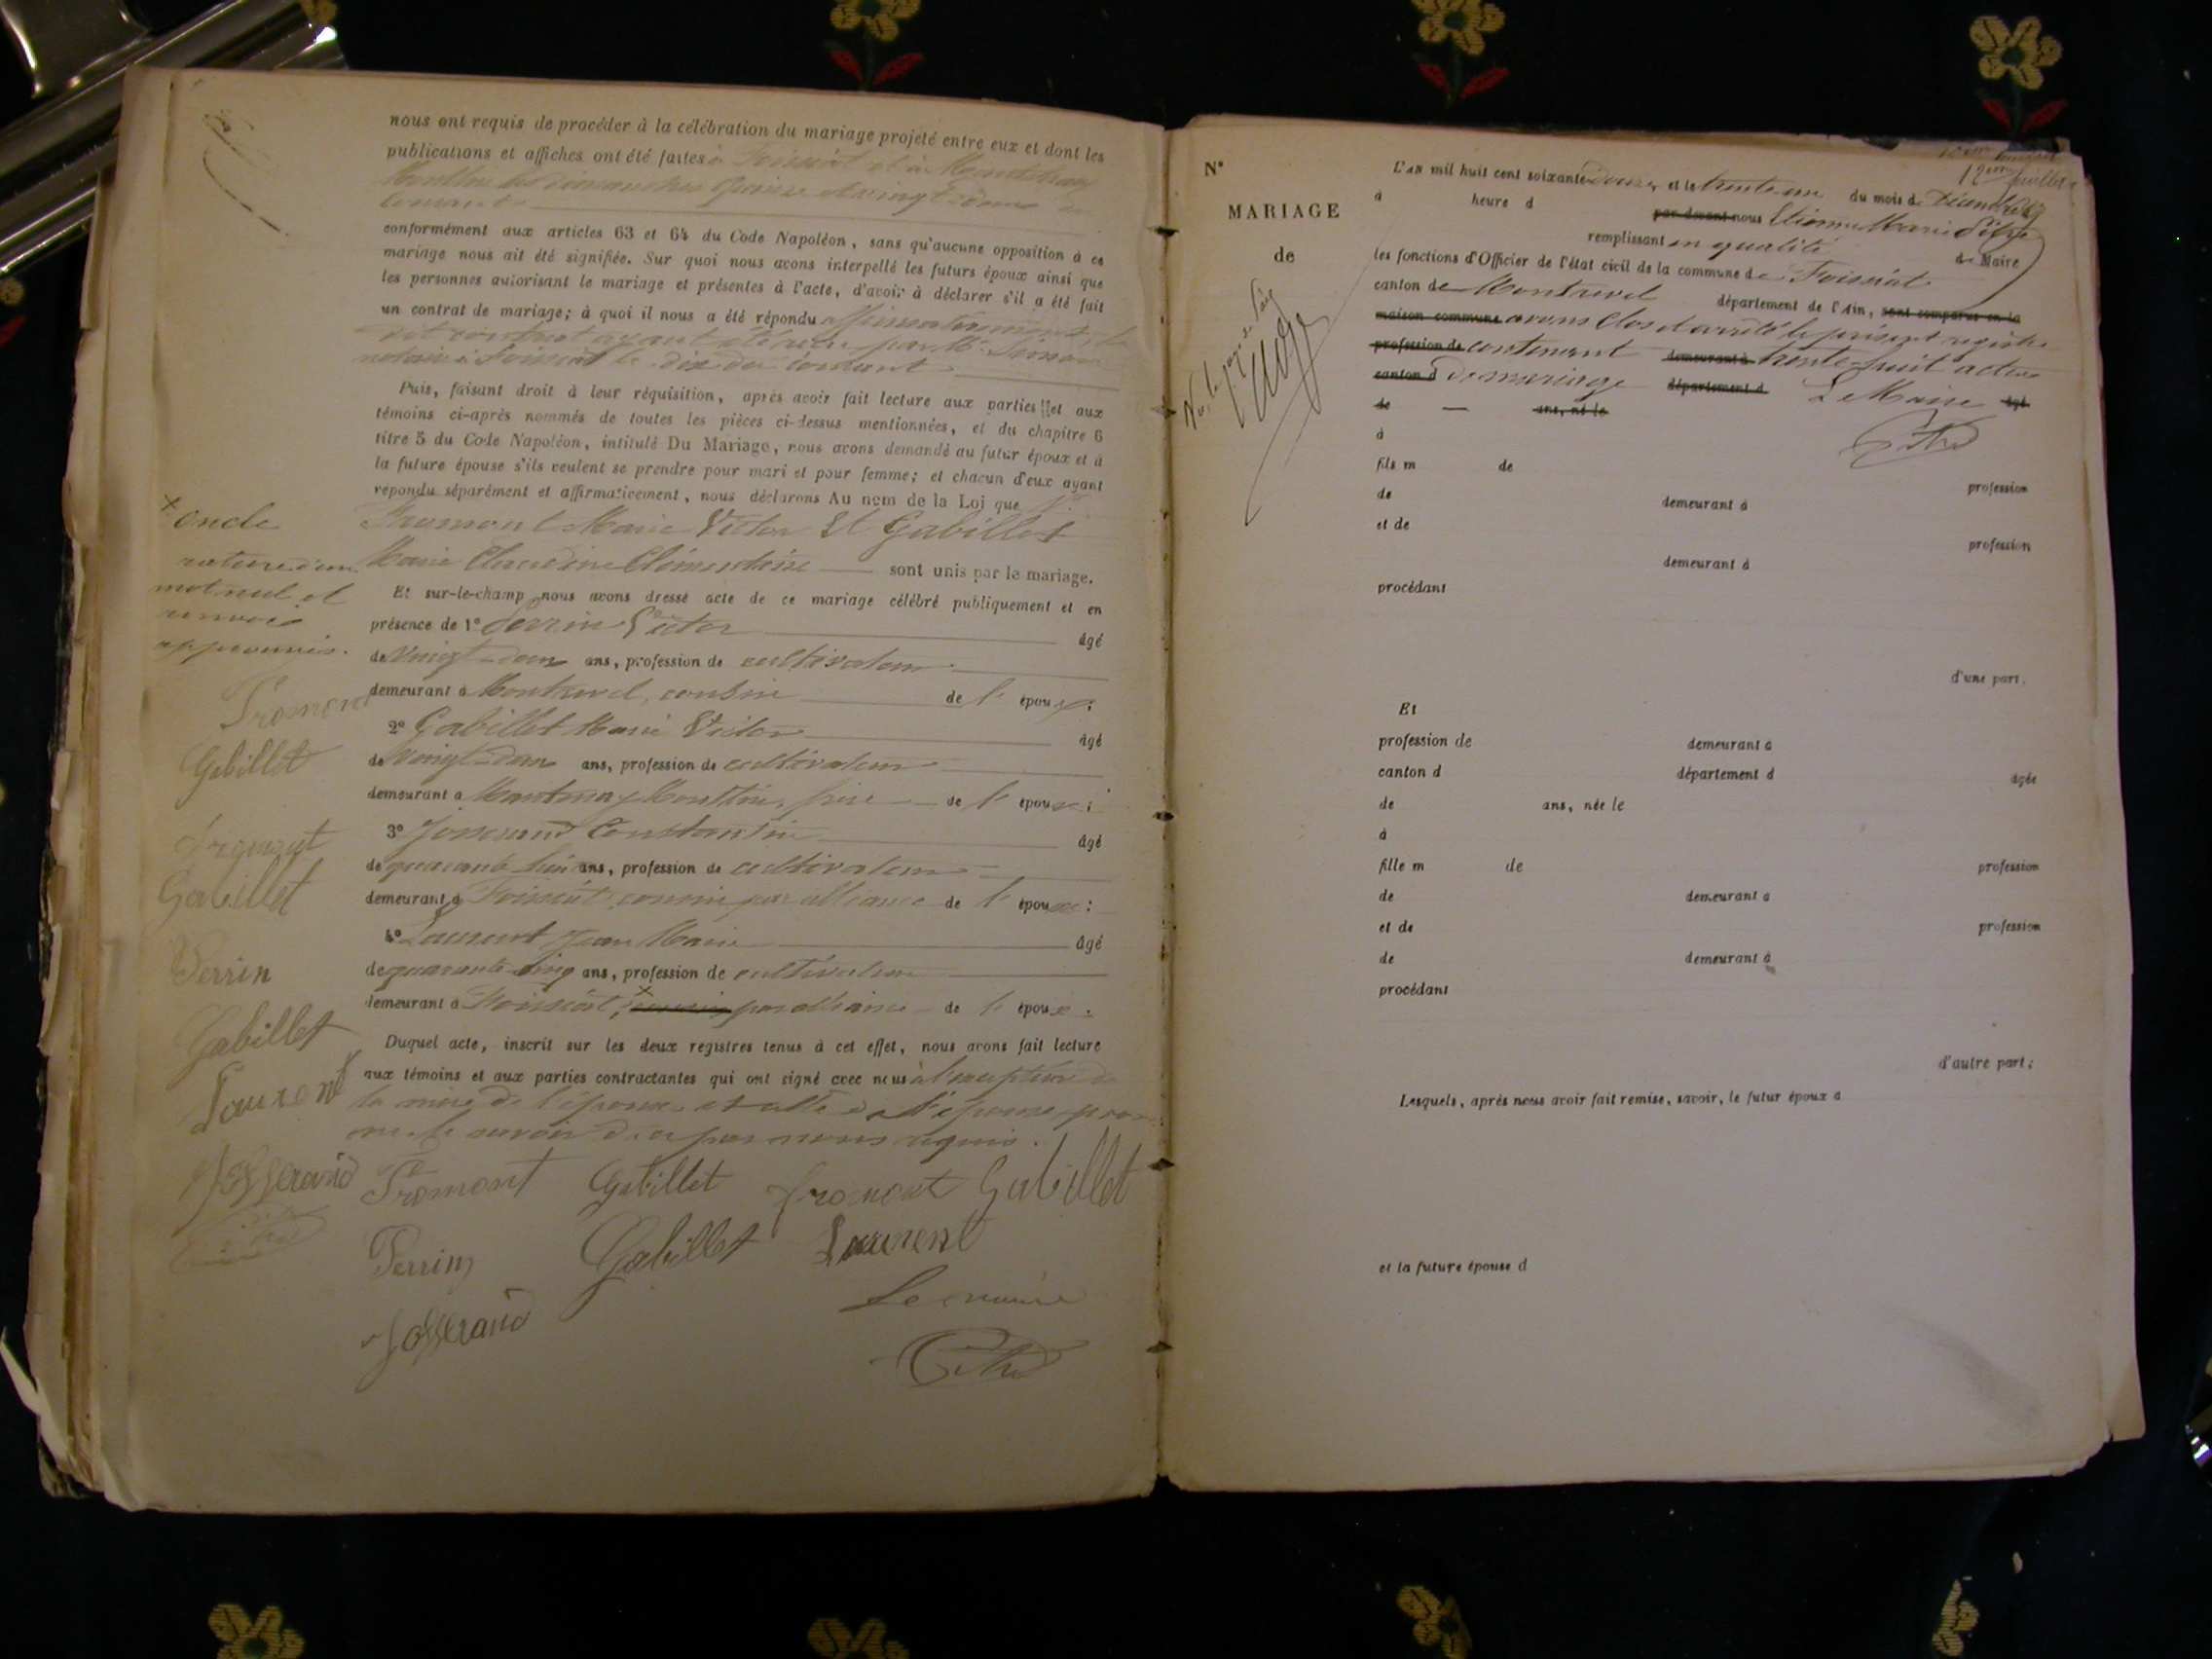 nous ont requis de procéder à la célébration du mariage projeté entre eux et dont les
publications et affiches ont été faites à Foissiat et à
les dimanches quinze et vingt deux
courant
conformément aux articles 63 et 64 du Code Napoléon, sans qu'aucune opposition à ce
mariage nous ait été signifiée. Sur quoi nous avons interpellé les futurs époux ainsi que
les personnes autorisant le mariage et présentes à l'acte, d'avoir à déclarer s'il a été fait
un contrat de mariage; à quoi il nous a été répondu affirmativement, le
dit contrat ayant été reçu par Me
notaire à Foissiat le dix du courant
Puis, faisant droit à leur réquisition, après avoir fait lecture aux parties et aux
témoins ci-après nommés de toutes les pièces ci-dessus mentionnées, et du chapitre 6
titre 5 du Code Napoléon, intitulé Du Mariage, nous avons demandé au futur époux et à
la future épouse s'ils veulent se prendre pour mari et pour femme; et chacun d'eux ayant
répondu séparément et affirmativement, nous déclarons Au nom de la Loi que
Fromont Marie Victor Et Gabillet
Marie Claudine Clémentine sont unis par le mariage.
Et sur-le-champ nous avons dressé acte de ce mariage célébré publiquement et en
présence de 1° Perrin Victor âgé
de Vingt-deux ans, profession de cultivateur
demeurant à Montrevel, cousin de l' époux;
2° Gabillet Marie Victor âgé
de Vingt-deux ans, profession de cultivateur
demeurant à frère de l' épouse;
3° Josserand Constantin âgé
de quarante huit ans, profession de cultivateur
demeurant à Foissiat cousin par alliance de l' épouse:
4° Laurent Jean Marie âgé
de quarante cinq ans, profession de cultivateur
demeurant à Foissiat, x par alliance de l' épouse.
Duquel acte, inscrit sur les deux registres tenus à cet effet, nous avons fait lecture
aux témoins et aux parties contractantes qui ont signé avec nous à l'exception de
la mère de l'époux et celle de l'épouse pour
ne le savoir de ce par nous requis.
Fromont Gabillet fromont Gabillet
Perrin Gabillet Laurent
Josserand
Le maire
x oncle
rature d'un
mot nul et
renvoi
approuvés.
Fromont
Gabillet
fromont
Gabillet
Perrin
Gabillet
Laurent
Josserand
N°
MARIAGE
de
L'an mil huit cent soixante-douze, et le trente un du mois de Décembre
à heure d par-devant nous Etienne Marie
remplissant en qualité de Maire
les fonctions d'Officier de l'état civil de la commune de Foissiat
canton de Montrevel département de l'Ain, sont comparus en la
maison commune avons clos et arrêté le présent registre
profession de contenant demeurant à trente huit actes
canton d de mariage département d Le Maire âgé
de ans, né le
à
fils m de
profession
de demeurant à
et de
profession
demeurant à
procédant
d'une part.
Et
profession de demeurant à
canton d département d âgée
de ans, née le
à
fille m de profession
de demeurant à
et de profession
de demeurant à
procédant
d'autre part;
Lesquels, après nous avoir fait remise, savoir, le futur époux d
et la future épouse d